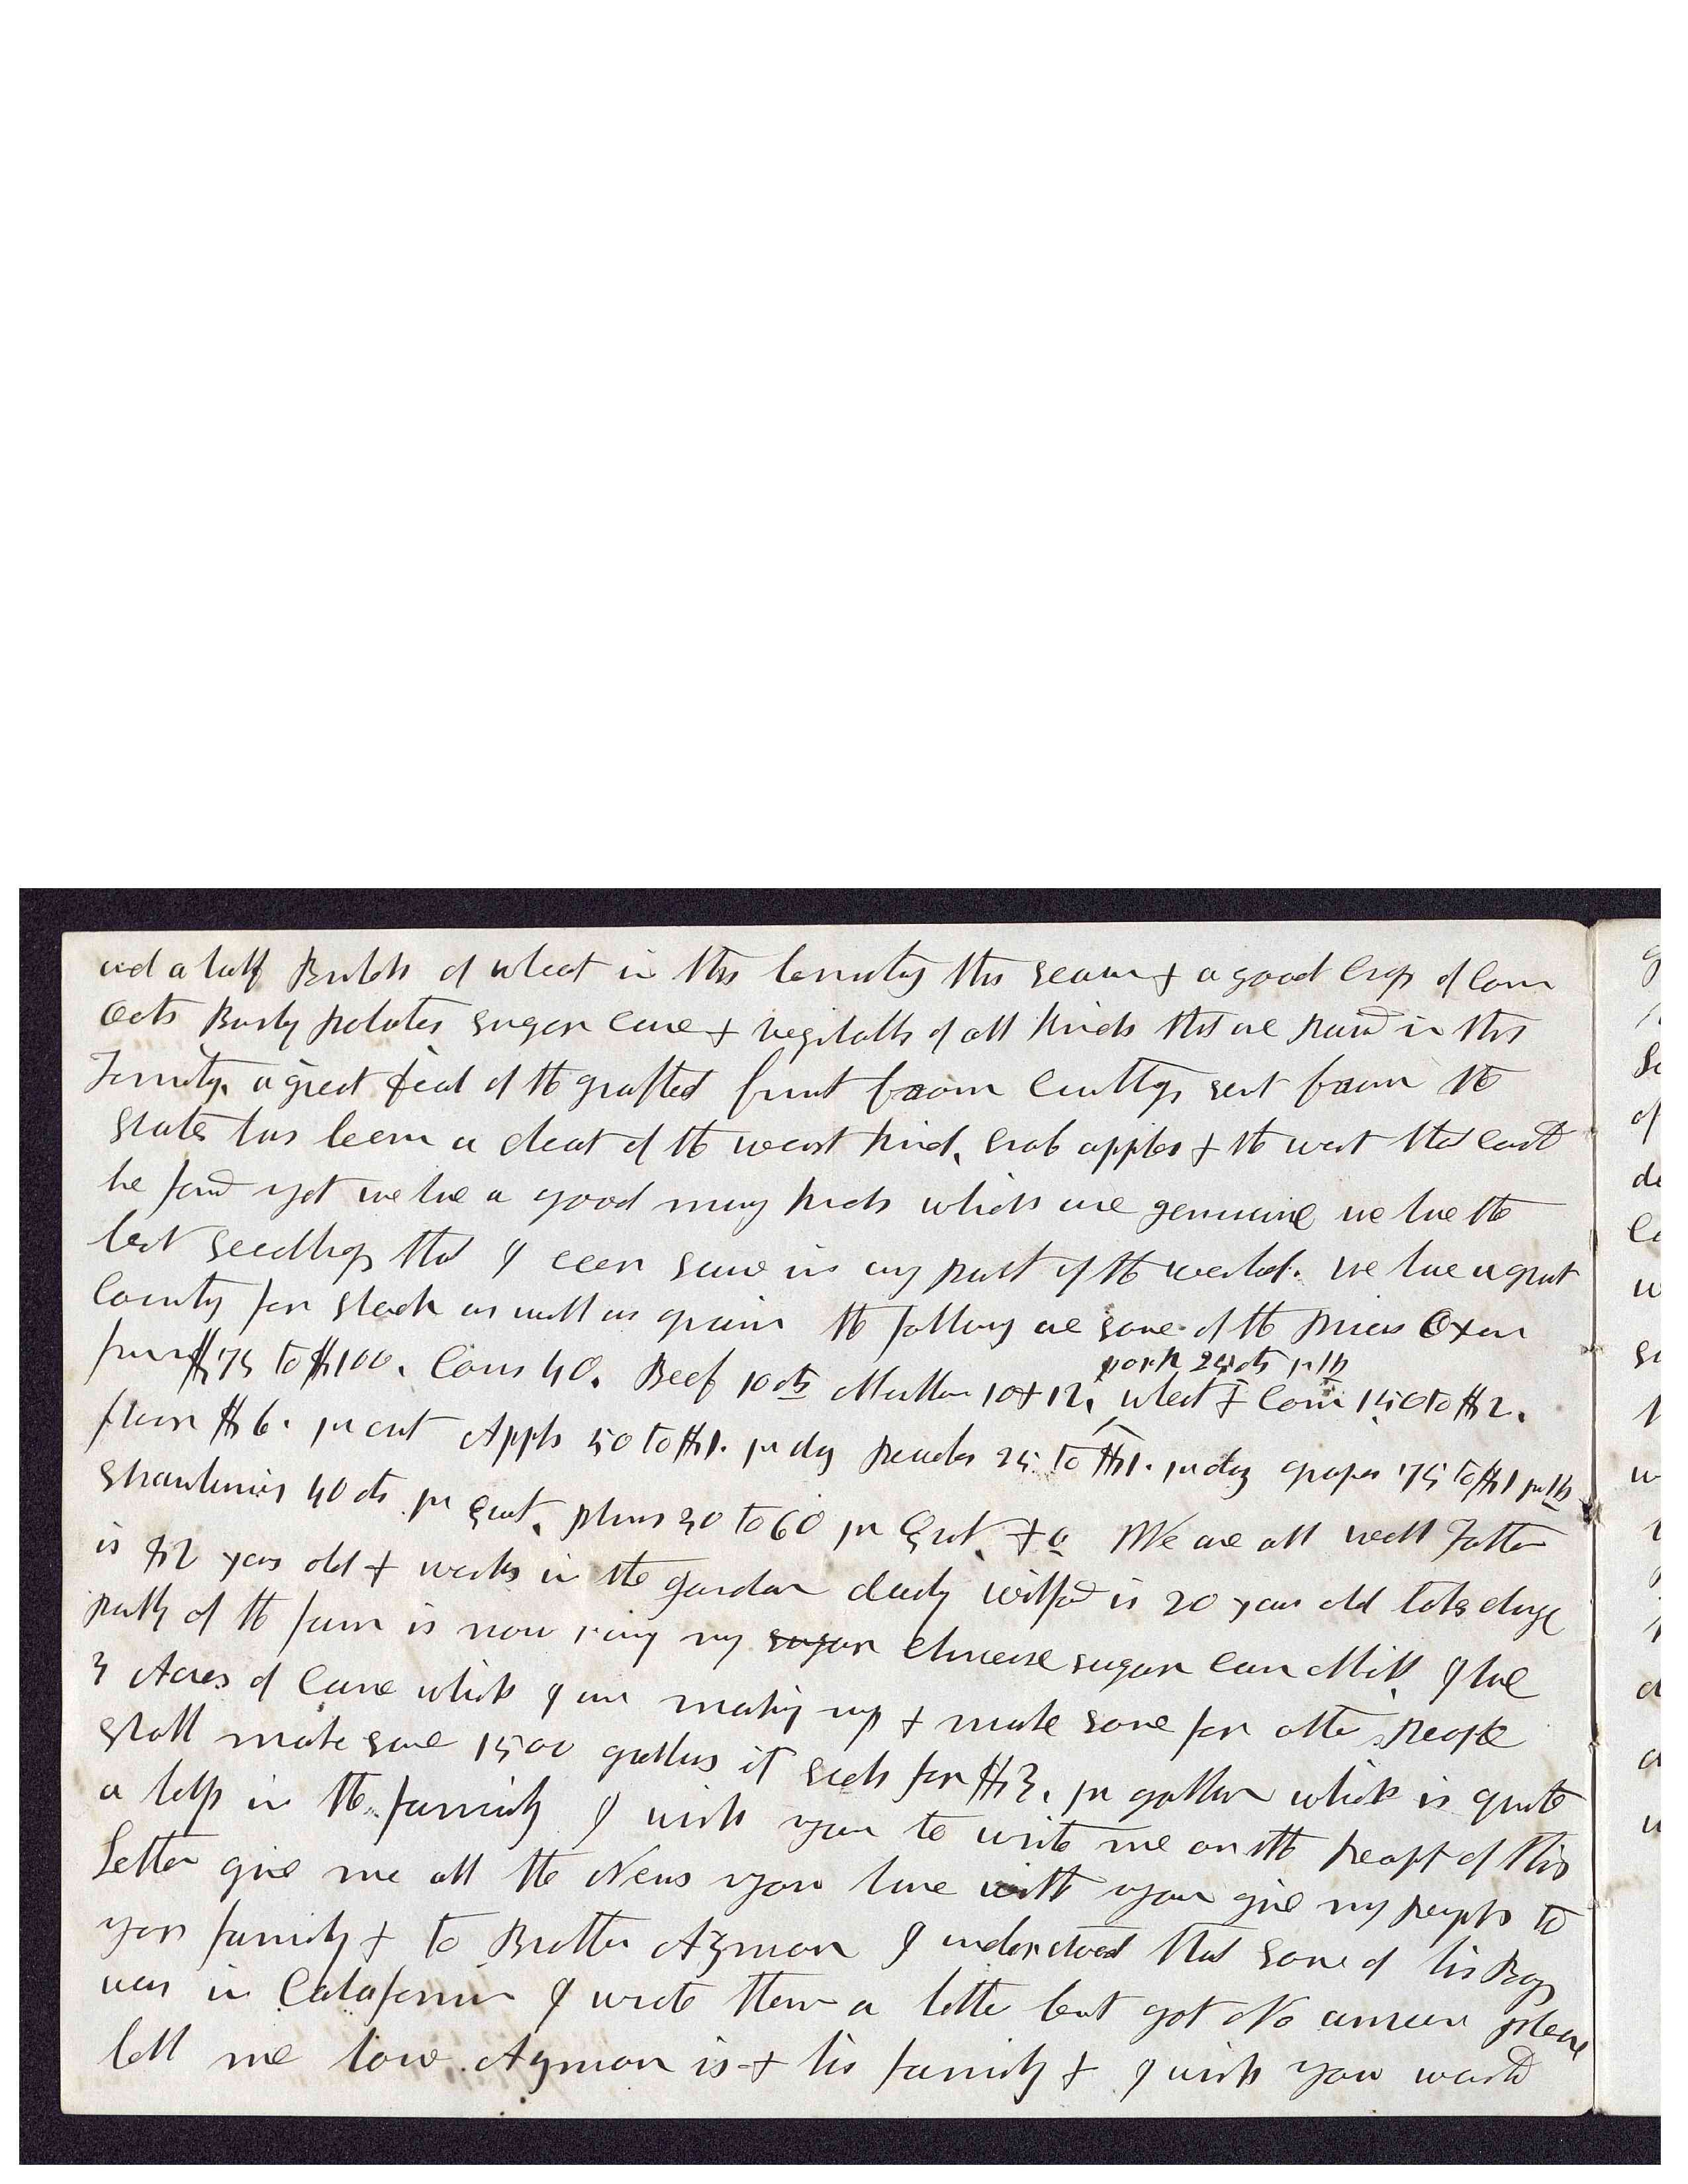 and a half Bushels of wheat in this Territory this season & a good Crop of Corn
Oats Barly potatoes sugar Cane & vegitables of all kinds that are raised in this
Territory, a great deal of the grafted fruit from Cuttings sent from the
States has been a cheat of the worst kind, Crab apples & the worst that could
be found yet we have a good many kinds which are genuine we have the
best seedlings that I ever saw in any part of the world. we have a great
County for stock as well as grain the following are some of the Prices Oxen
from $75 to $100. Cows 40. Beef 10 cts Mutton 10 & 12, pork 25 cts pr lb wheat & Corn 150 to $2.
flour $6. pr cwt Apples 50 to $1. pr doz peaches 25 to $1. pr doz grapes 75 to $1 pr lb
Strawberries 40 cts pr Quart, plums 30 to 60 pr Qrt, &c We are all well Father
is 82 years old & works in the garden daily Wilford is 20 years old takes charge
partly of the farm is now my sugar Chineese sugar Cane Mill, I have
3 Acres of Cane which I am making up & make some for other People
shall make some 1500 gallons it sells for $3. pr gallon which is quite
a help in the family I wish you to write me on the recept of this
Letter give me all the News you have with you give my respects to
your family & to Brother Azmon I understood that some of his Boys
was in Calafornia I wrote them a letter but got No answer please
tell me how Azmon is & his family & I wish you would